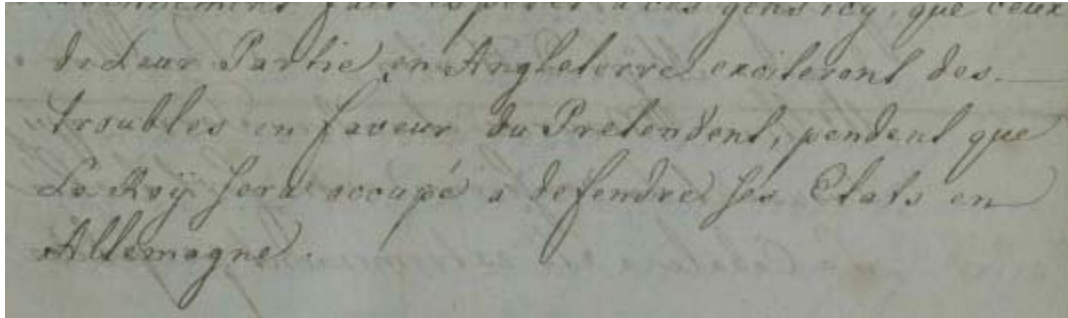 fait esperer a ces gens icy, que ceux
de Leur Partie en Angleterre exciteront des
troubles en faveur du Pretendent, pendent que
Le Roÿ sera occupé a defendre ses Etats en
Allemagne.